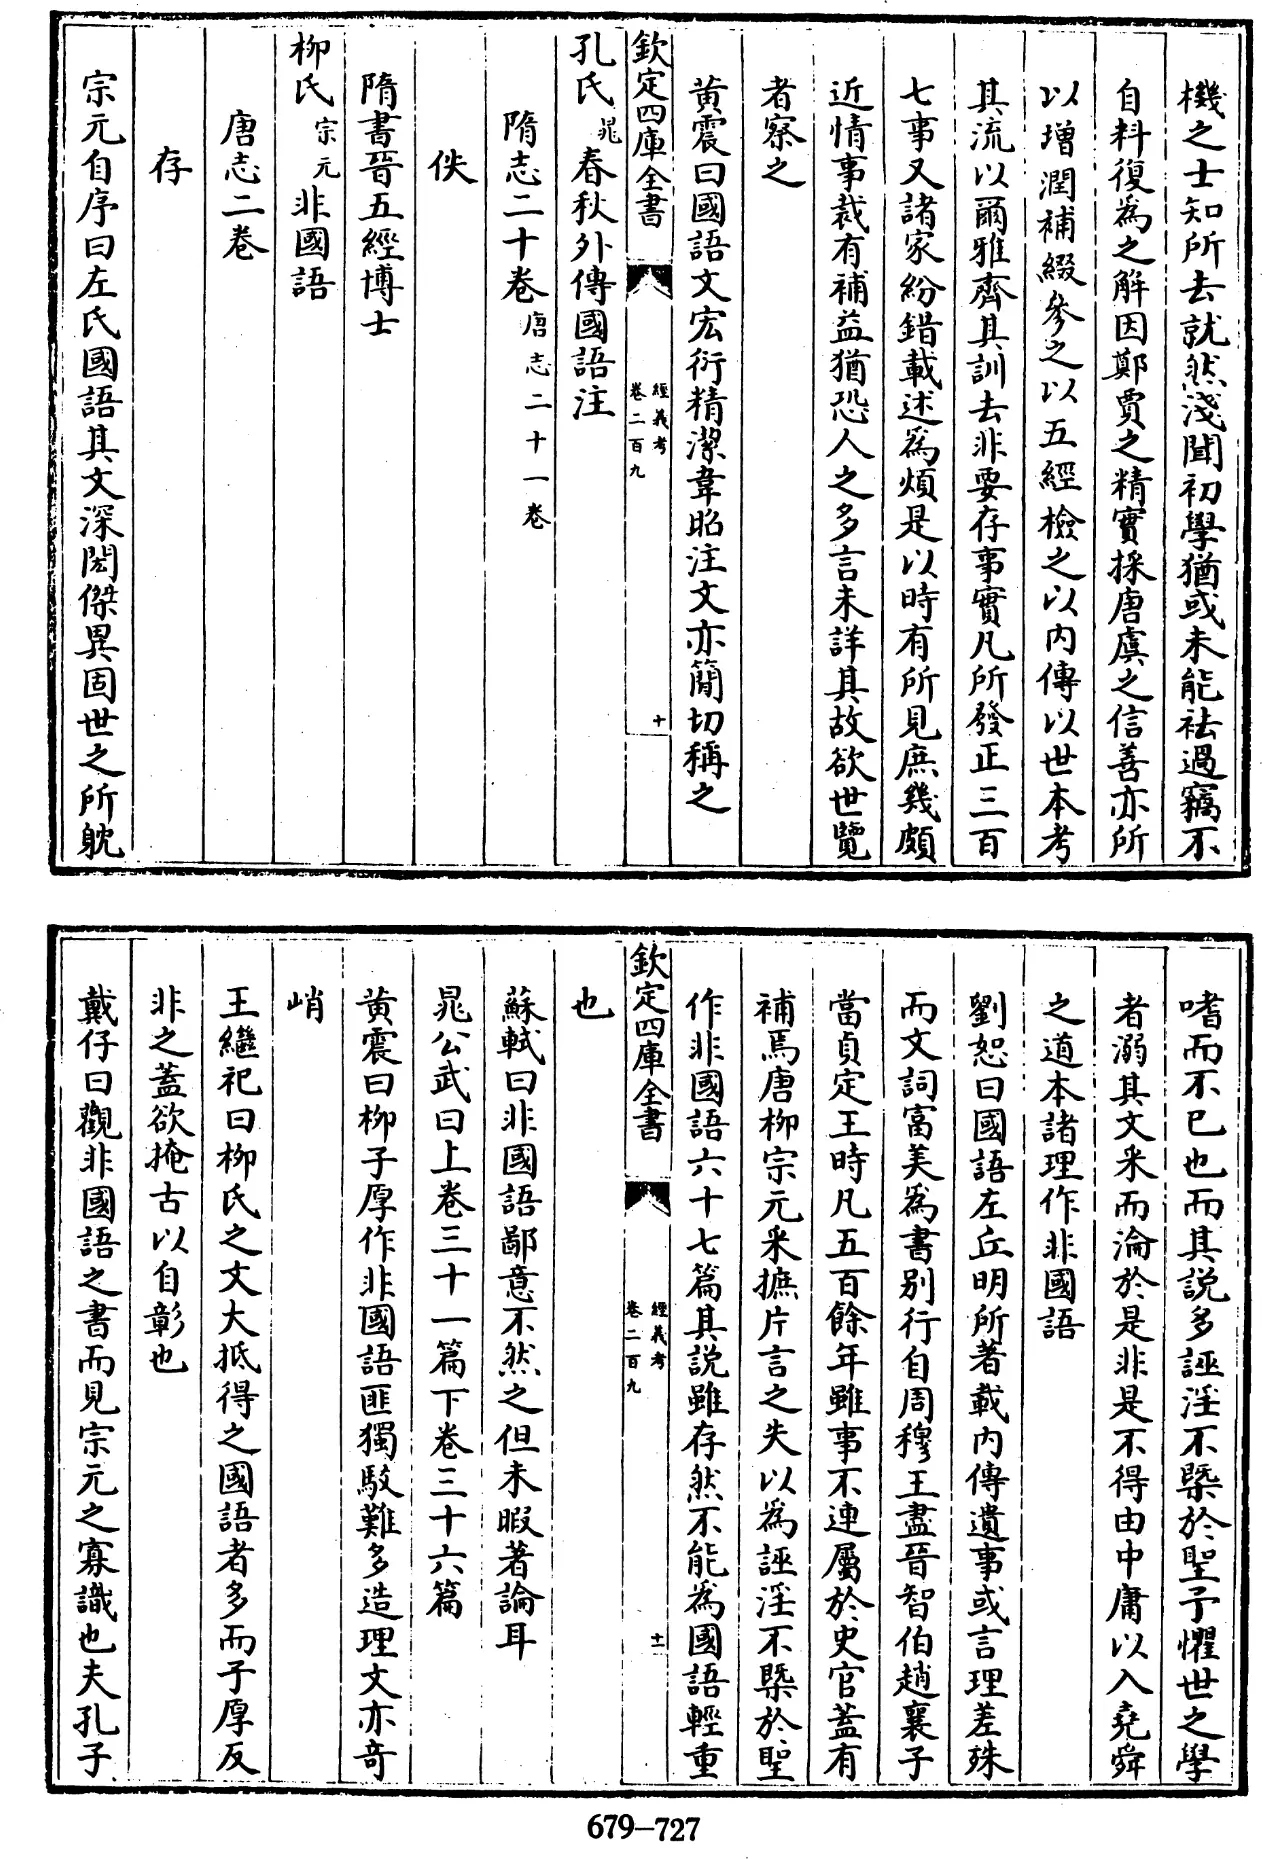 機之士知所去就然淺聞初學猶或未能祛過竊不
自料復爲之解因鄭賈之精實採唐虞之信善亦所
以增潤補綴參之以五經檢之以内傳以世本考
其流以爾雅齊其訓去非要存事實凡所發正三百
七事又諸家紛錯載述爲煩是以時有所見庶幾頗
近情事裁有補益猶恐人之多言未詳其故欲世覽
者察之
黄震曰國語文宏衍精潔韋昭注文亦簡切稱之
欽定四庫全書 經義考 卷二百九 十
孔氏晁春秋外傳國語注
隋志二十卷唐志二十一卷
佚
隋書晉五經博士
柳氏宗元非國語
唐志二卷
存
宗元自序曰左氏國語其文深閎傑異固世之所躭
嗜而不已也而其説多誣淫不槩於聖予懼世之學
者溺其文釆而淪於是非是不得由中庸以入堯舜
之道本諸理作非國語
劉恕曰國語左丘明所著載内傳遺事或言理差殊
而文詞富美爲書别行自周穆王盡晉智伯趙襄子
當貞定王時凡五百餘年雖事不連屬於史官蓋有
補焉唐柳宗元釆摭片言之失以爲誣淫不槩於聖
作非國語六十七篇其説雖存然不能爲國語輕重
欽定四庫全書 經義考 卷二百九 十一
也
蘇軾曰非國語鄙意不然之但未暇著論耳
晁公武曰上卷三十一篇下卷三十六篇
黄震曰柳子厚作非國語匪獨駮難多造理文亦奇
峭
王繼祀曰柳氏之文大抵得之國語者多而子厚反
非之蓋欲掩古以自彰也
戴仔曰觀非國語之書而見宗元之寡識也夫孔子
679—727